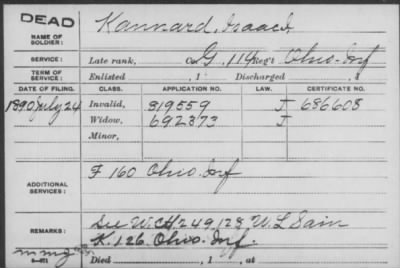 DEAD
NAME OF SOLDIER: Kannard, Isaac
SERVICE: Late rank, Co. G, 114 Reg't Ohio Inf
TERM OF SERVICE: Enlisted , 1 Discharged , 1
DATE OF FILING. CLASS. APPLICATION NO. LAW. CERTIFICATE NO.
1890 July 24 Invalid, 819559 J 686608
Widow, 692873 J
Minor,
ADDITIONAL SERVICES: F 160 Ohio Inf
REMARKS: See W.C. 249,128 W L Sain
K. 126. Ohio. Inf.
Died , 1 , at